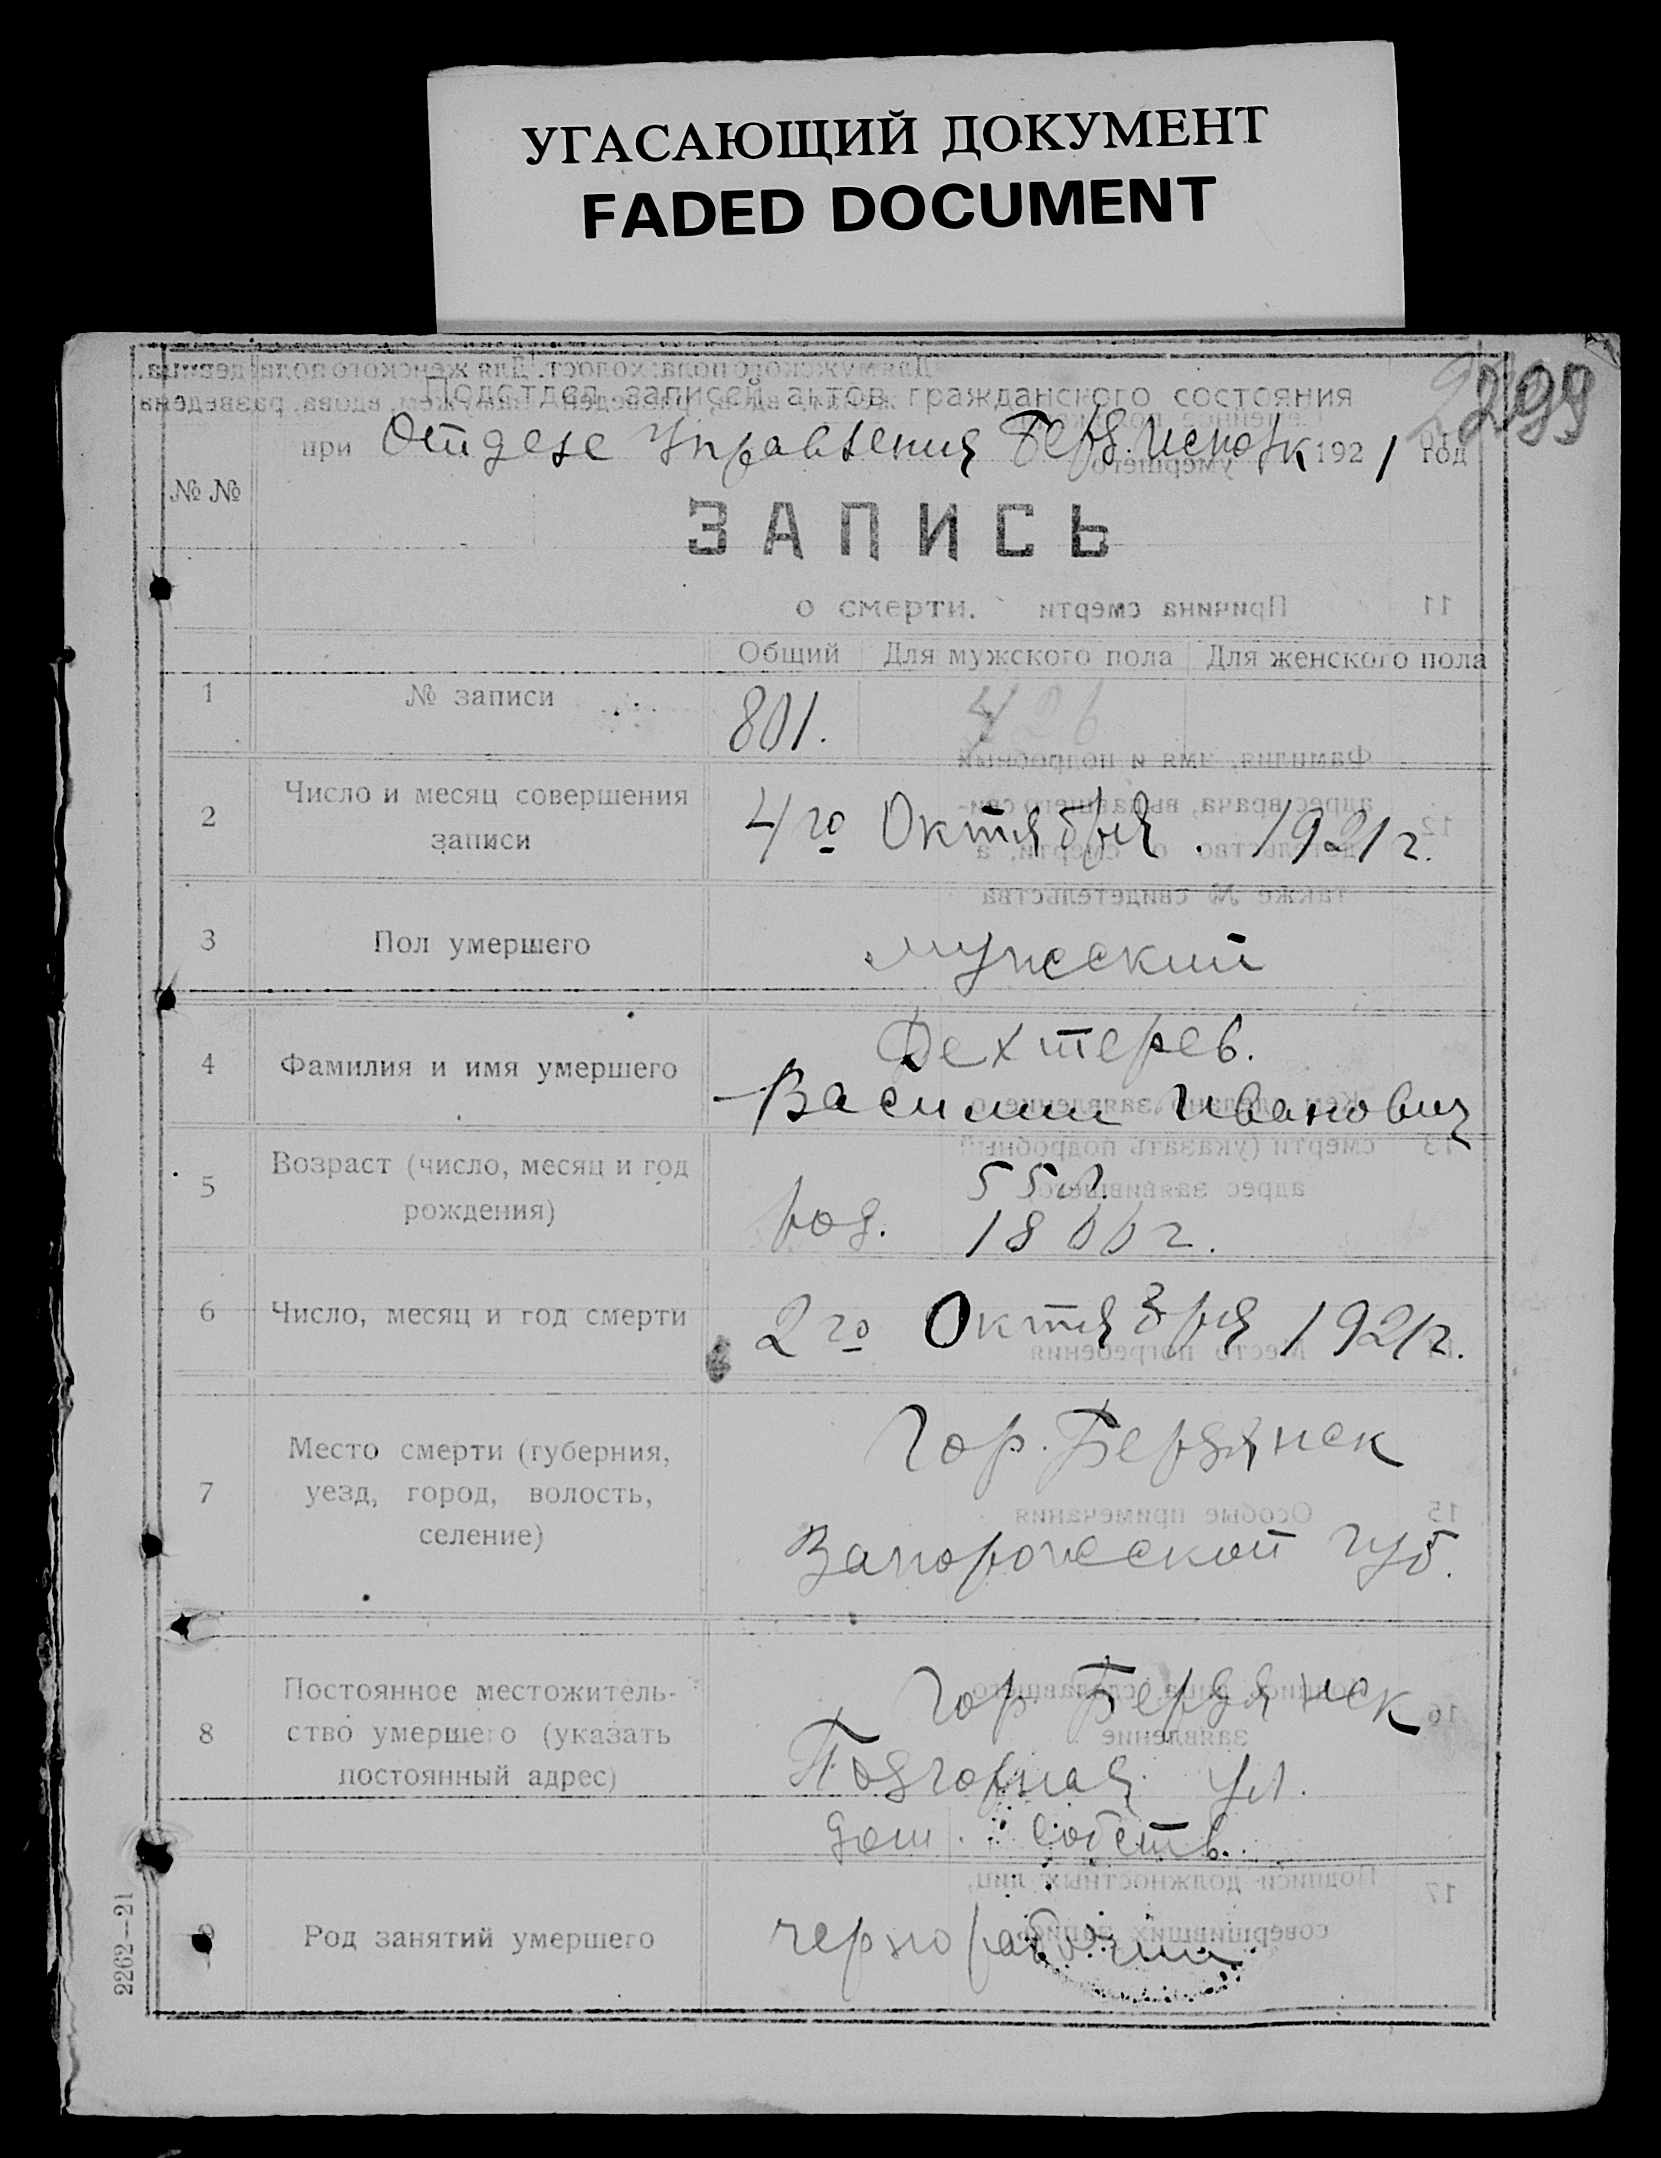 УГАСАЮЩИЙ ДОКУМЕНТ
FADED DOCUMENT
299
Подотдел записей актов гражданского состояния
при Отделе Управления Берд. Исполк 1921 год
№ №
ЗАПИСЬ
о смерти.
Общий Для мужского пола Для женского пола
1 № записи 801. 426
2 Число и месяц совершения
записи
4го Октября. 1921 г.
3 Пол умершего мужеский
4 Фамилия и имя умершего
Дехтерев.
Василий Иванович
5 Возраст (число, месяц и год
рождения)
55 л.
род. 1866 г.
6 Число, месяц и год смерти 2го Октября 1921 г.
7 Место смерти (губерния,
уезд, город, волость,
селение)
Гор. Бердянск
Запорожеской губ.
8 Постоянное местожитель-
ство умершего (указать
постоянный адрес)
Гор Бердянск
Подгорная ул.
дом. собств.
9 Род занятий умершего чернорабочий
2262—21